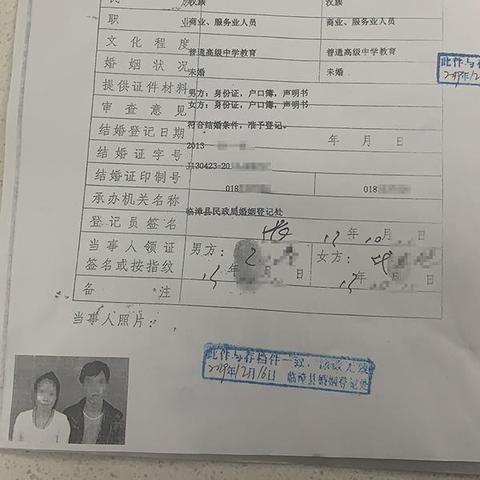 民 族 汉族 汉族
职 业 商业、服务业人员 商业、服务业人员
文化程度 普通高级中学教育 普通高级中学教育
婚姻状况 未婚 未婚
提供证件材料 男方：身份证，户口簿，声明书
女方：身份证，户口簿，声明书
审查意见 符合结婚条件，准予登记。
结婚登记日期 2013 年 月 日
结婚证字号 30423-20
结婚证印制号 018 018
承办机关名称 临漳县民政局婚姻登记处
登记员签名 年 10 月 日
当事人领证 男方： 女方：
签名或按指纹 年 日 年 月 日
备 注
当事人照片：
此件与存档件一致，涂改无效
2019年12月16日 临漳县婚姻登记处
此件与存
2019年12